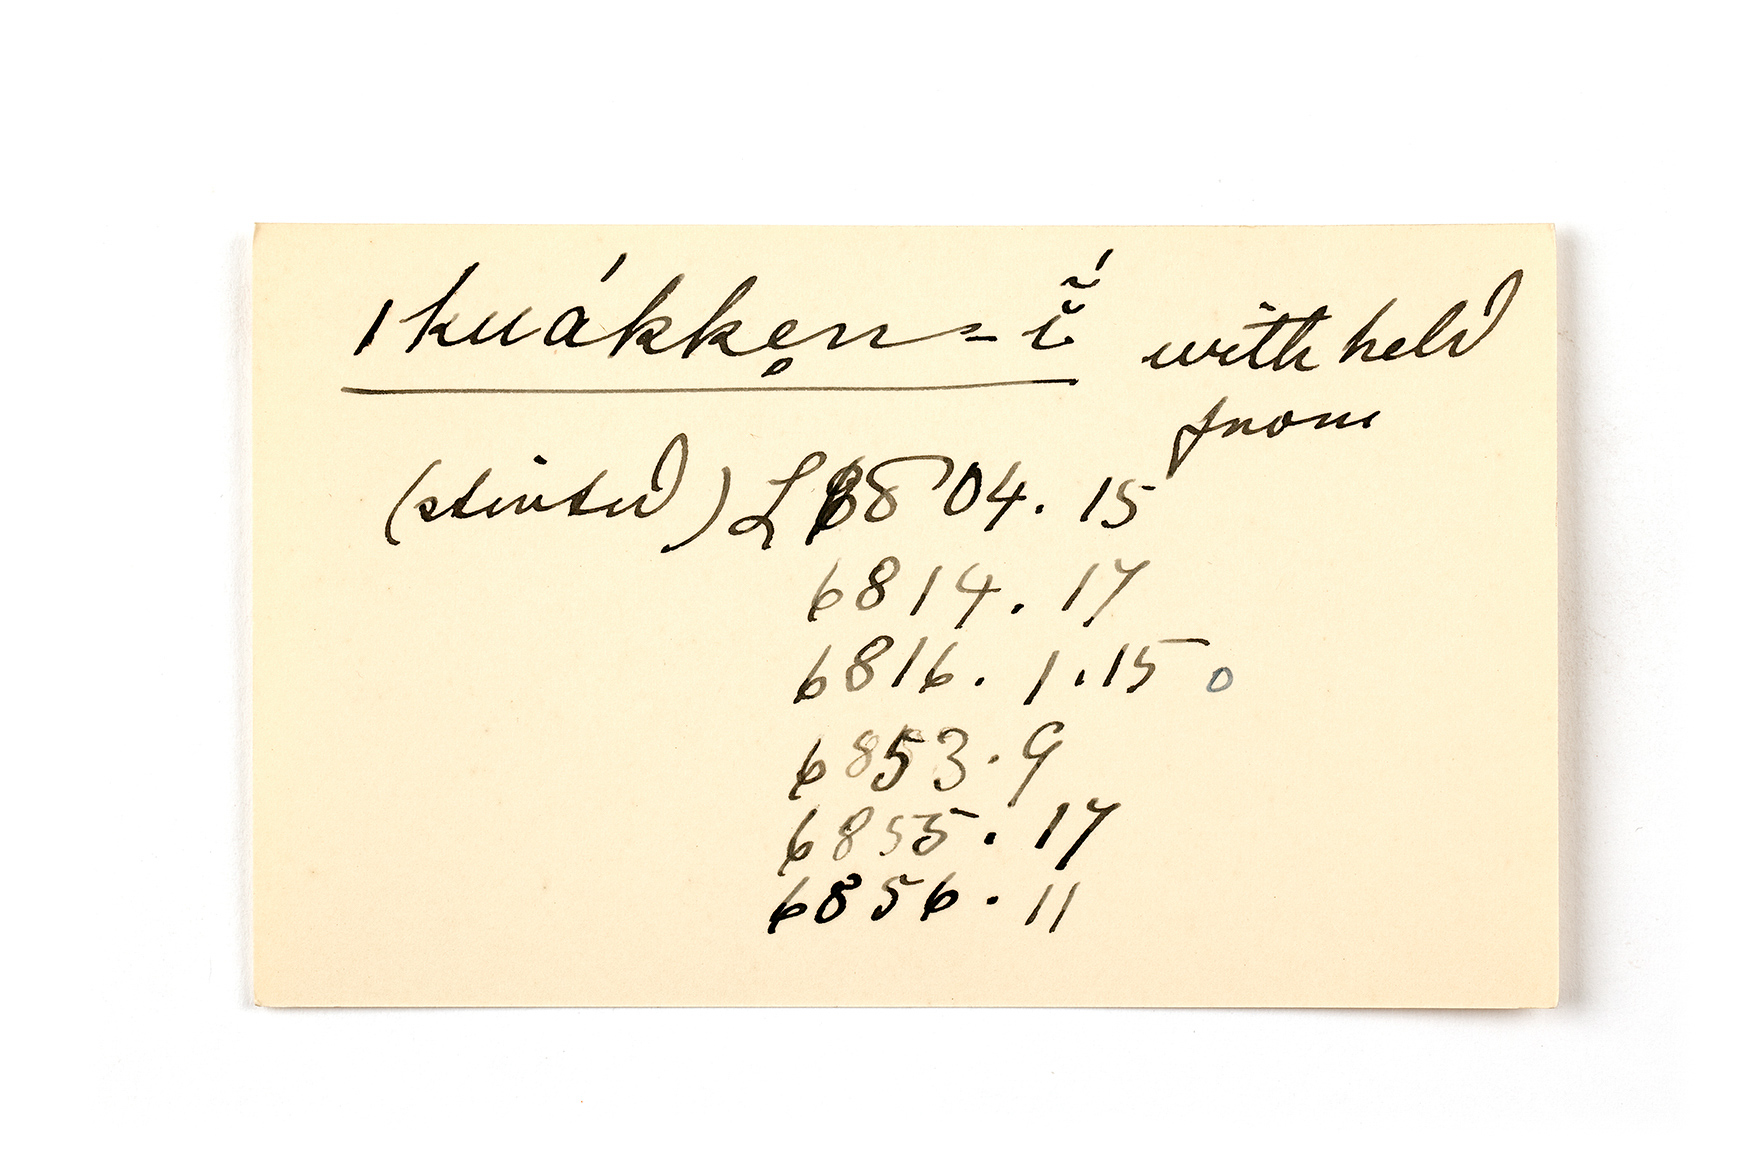 |kuákkẹn=ĩ̆́ with held
from
(stinted) L 6804. 15
6814. 17
6816. 1.15 o
6853. 9
6855. 17
6856. 11